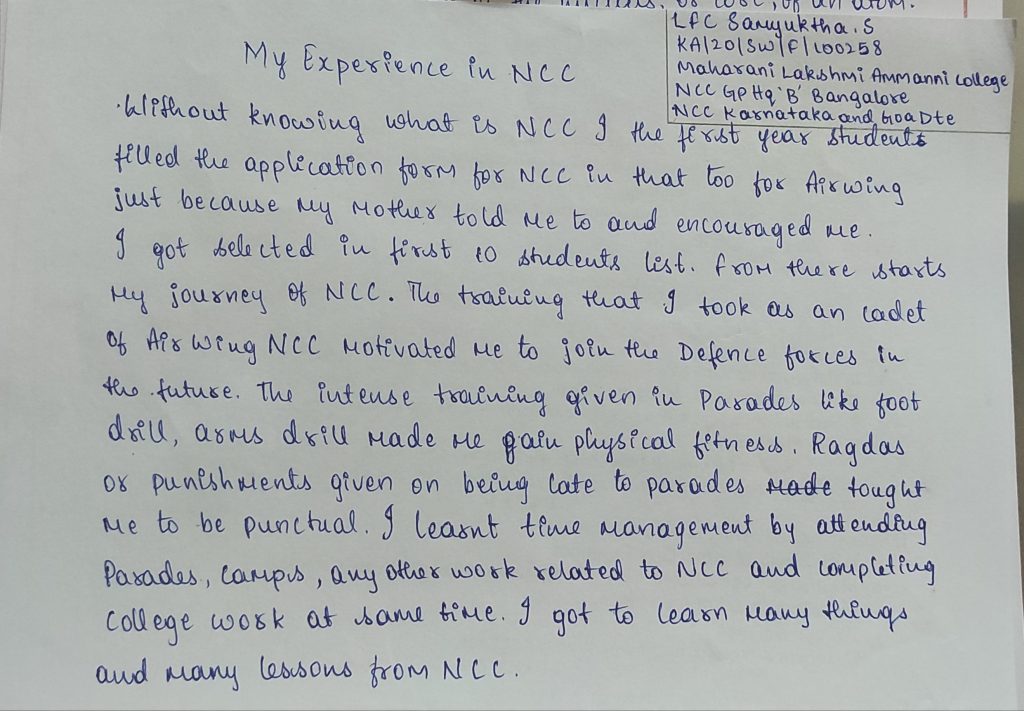 LFC Samyuktha.S
KA/20/SW/F/100258
Maharani Lakshmi Ammanni College
NCC GP Hq 'B' Bangalore
NCC Karnataka and Goa Dte
My Experience in NCC
Without knowing what is NCC I the first year students
filled the application form for NCC in that too for Airwing
just because my mother told me to and encouraged me.
I got selected in first 10 students list. From there starts
my journey of NCC. The training that I took as an cadet
of Air Wing NCC motivated me to join the Defence forces in
the future. The intense training given in Parades like foot
drill, arms drill made me gain physical fitness. Ragdas
or punishments given on being late to parades made tought
me to be punctual. I learnt time management by attending
Parades, camps, any other work related to NCC and completing
college work at same time. I got to learn many things
and many lessons from NCC.